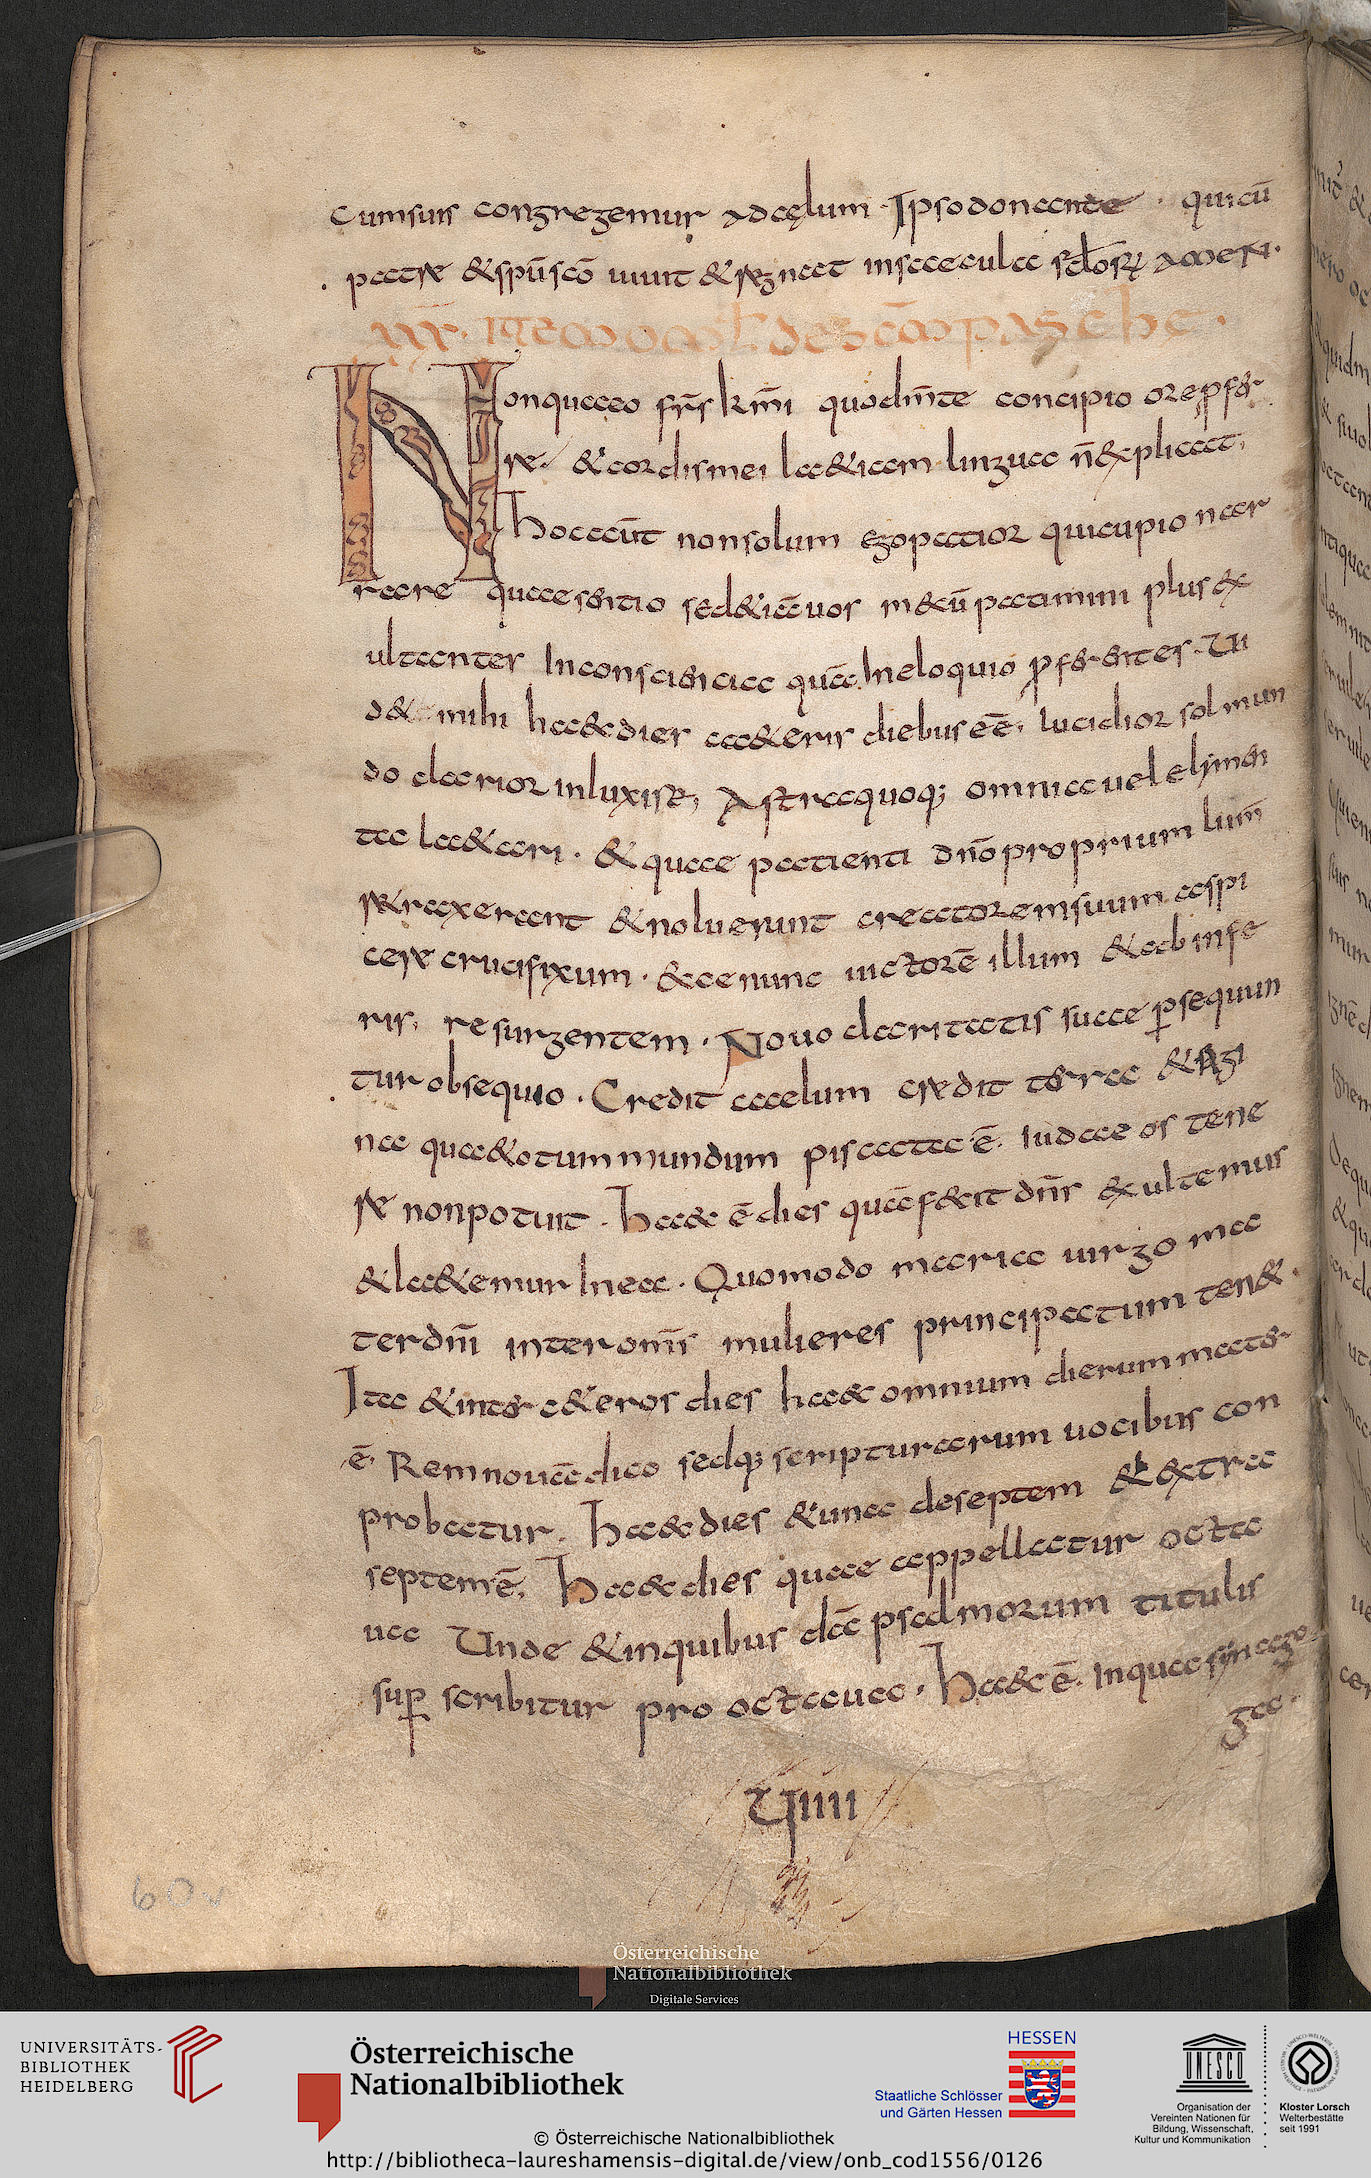 cum suis congregemur ad cęlum. Ipso donante. qui cū
patre & spū scō uiuit & regnat in saecula sclorꝝ amen.
XX. ITEM OML. DE SCM PASCHE.
Non queo frs kmi quod mte concipio ore ꝓfer
re. & cordis mei laetitiam lingua n̄ explicat.
hoc aūt non solum ego patior qui cupio nar
rare quae sentio sed & iā uos mecū patimini plus ex
ultantes In conscientia quā In eloquio ꝓferentes. Ui
detur mihi haec dies caeteris diebus eē. lucidior sol mun
do clarior inluxisse, Astra quoq; omnia uel elymen
ta laetari. & quae patienti dn̄o proprium lum̄
retraxerant & noluerunt creatorem suum aspi
cere crucifixum. & ce nunc uictorē illum & ab infe
ris, resurgentem. Nouo claritatis suae ꝑsequun
tur obsequio. Credit caelum credit terra & regi
na quae totum mundum piscata ē. iudaeos tene
re non potuit. Haec ē dies quā fecit dns exultemus
& laetemur In ea. Quomodo maria uirgo ma
ter dni inter omīs mulieres principatum ten&.
Ita & inter ceteros dies haec omnium dierum mater
ē. Rem nouā dico sed q; scripturarum uocibus con
probatur. Haec dies & una de septem & extra
septem ē. Haec dies quae appellatur octa
ua Unde & in quibus dā psalmorum titulis
suꝑ scribitur pro octaua. Haec ē. In qua synago
ga.
UIIII
60v
Österreichische
Nationalbibliothek
Digitale Services
UNIVERSITÄTS-
BIBLIOTHEK
HEIDELBERG
Österreichische
Nationalbibliothek
HESSEN
Staatliche Schlösser
und Gärten Hessen
UNESCO
Organisation der
Vereinten Nationen für
Bildung, Wissenschaft,
Kultur und Kommunikation
Kloster Lorsch
Welterbestätte
seit 1991
© Österreichische Nationalbibliothek
http://bibliotheca-laureshamensis-digital.de/view/onb_cod1556/0126